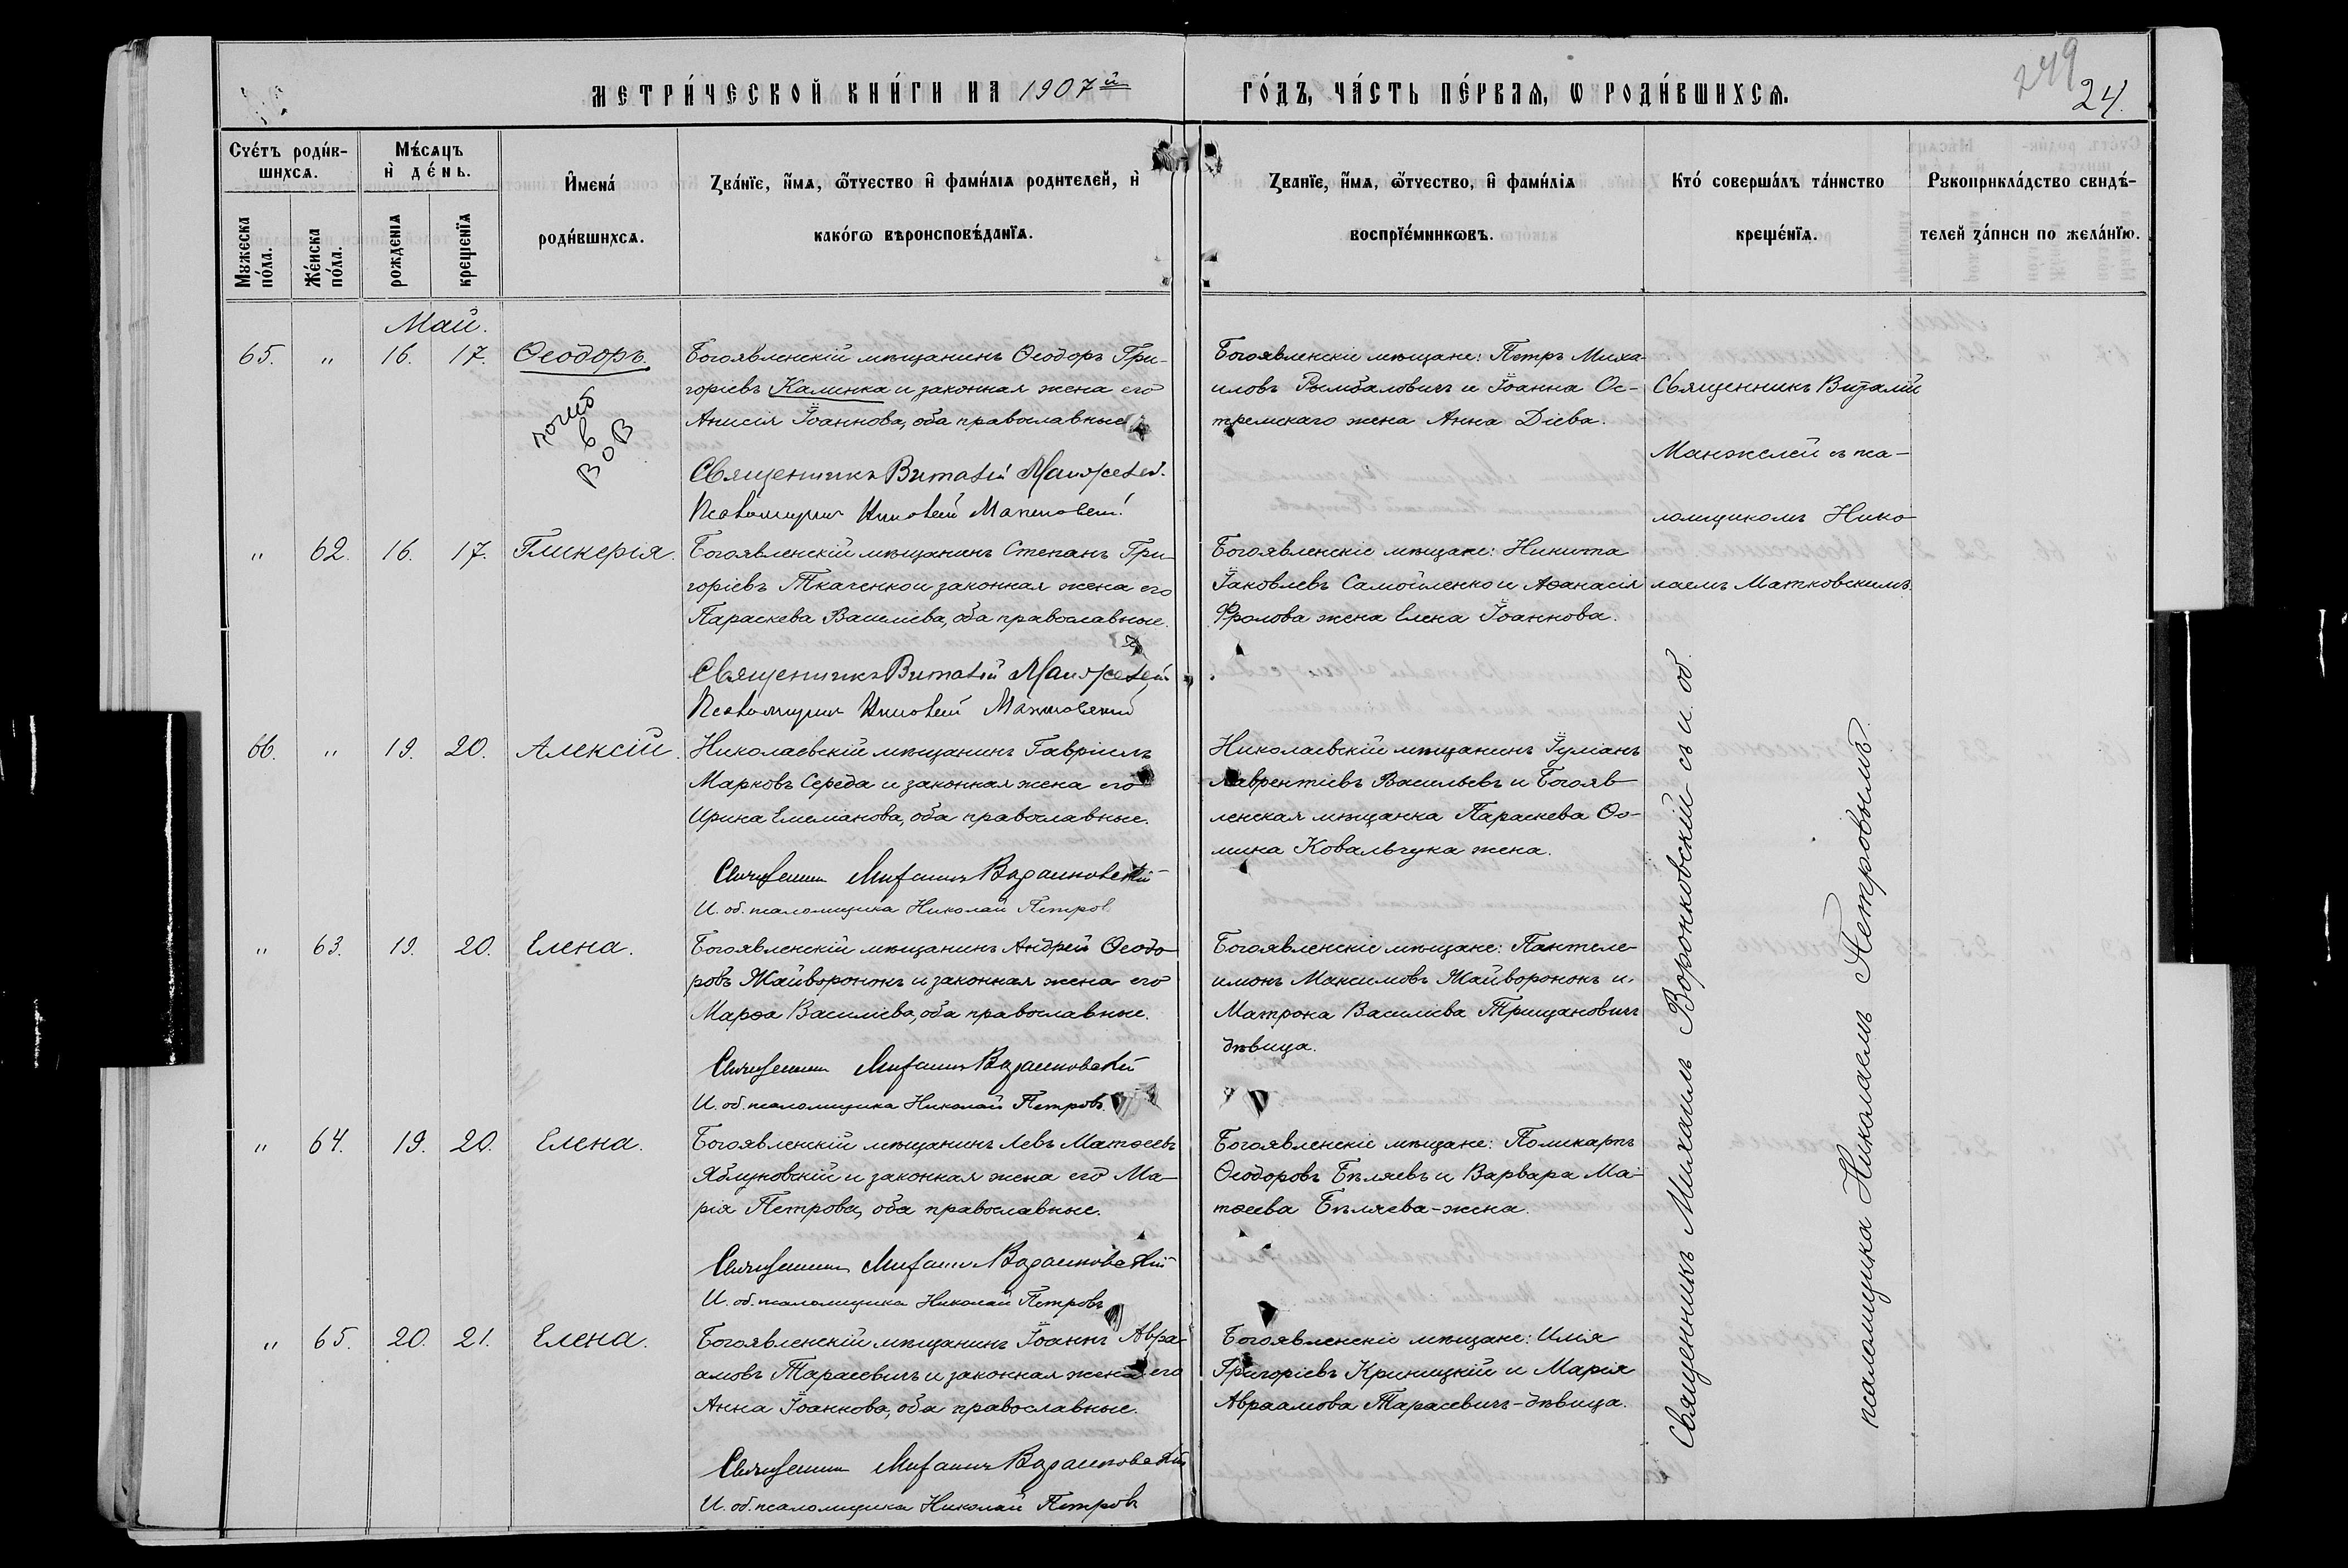 МЕТРИ́ЧЕСКОЙ КНИ́ГИ НА 1907й
ГО́ДЪ, ЧА́СТЬ ПЕ́РВАѦ, Ѡ РОДИ́ВШИХСѦ.
249
24.
Счéтъ роди́в-
шихсѧ.
Мужеска
по́ла.
Же́нска
по́ла.
Мѣ́сѧцъ
и҆ де́нь.
рожденїѧ
крещенїѧ
И҆мена́
роди́вшихсѧ.
Зва́нїе, и҆́мѧ, ѻ҆́тчество и҆ фами́лїѧ родителей, и҆
како́гѡ вѣроисповѣ́данїѧ.
Званїе, и҆́мѧ, ѻ҆́тчество, и҆ фами́лїѧ
воспрїе́мникѡвъ.
Кто́ соверша́лъ та́инство
креще́нїѧ.
Рꙋкоприкла́дство свидѣ́-
телей за́писи по жела́нїю.
Май.
65. " 16. 17. Ѳеодоръ.
погиб
в
ВОВ
Богоявленскій мѣщанинъ Ѳеодоръ Гри-
горіевъ Калинка и законная жена его
Анисія Іоаннова, оба православные
Священникъ Виталій Манжелей.
Псаломщикъ Николай Матковскій
Богоявленскіе мѣщане: Петръ Миха-
иловъ Рымбаловичъ и Іоанна Ос-
тремскаго жена Анна Діева.
Священникъ Виталій
Манжелей съ пса-
ломщикомъ Нико
лаемъ Матковскимъ.
" 62. 16. 17. Гликерія.
Богоявленскій мѣщанинъ Степанъ Гри-
горіевъ Ткаченко и законная жена его
Параскева Василіева, оба православные.
Священникъ Виталій Манжелей
Псаломщикъ Николай Матковскій
Богоявленскіе мѣщане: Никита
Іаковлевъ Самойленко и Аѳанасія
Фролова жена Елена Іоаннова.
66. " 19. 20. Алексій.
Николаевскій мѣщанинъ Гавріилъ
Марковъ Середа и законная жена его
Ирина Емеліанова, оба православные.
Священникъ Михаилъ Воронковскій
И. об. псаломщика Николай Петров
Николаевскій мѣщанинъ Іуліанъ
Лаврентіевъ Васильевъ и Богояв-
ленская мѣщанка Параскева Ѳо-
мина Ковальчука жена.
" 63. 19. 20. Елена.
Богоявленскій мѣщанинъ Андрей Ѳеодо-
ровъ Жайворонокъ и законная жена его
Марѳа Василіева, оба православные.
Священникъ Михаилъ Воронковскій
И. об. псаломщика Николай Петровъ
Богоявленскіе мѣщане: Пантеле-
имонъ Максимовъ Жайворонокъ и
Матрона Василіева Трищановичъ
дѣвица.
" 64. 19. 20. Елена.
Богоявленскій мѣщанинъ Левъ Матѳеевъ
Яблуновскій и законная жена его Ма-
рія Петрова, оба православные.
Священникъ Михаилъ Воронковскій
И. об. псаломщика Николай Петровъ
Богоявленскіе мѣщане: Поликарпъ
Ѳеодоровъ Бѣляевъ и Варвара Ма-
тѳеева Бѣляева-жена.
" 65. 20. 21. Елена.
Богоявленскій мѣщанинъ Іоаннъ Авра-
амовъ Тарасевичъ и законная жена его
Анна Іоаннова, оба православные.
Священникъ Михаилъ Воронковскій
И. об. псаломщика Николай Петровъ
Богоявленскіе мѣщане: Илія
Григоріевъ Криницкій и Марія
Авраамова Тарасевичъ-дѣвица.
Священникъ Михаилъ Воронковскій съ и. об.
псаломщика Николаемъ Петровымъ.